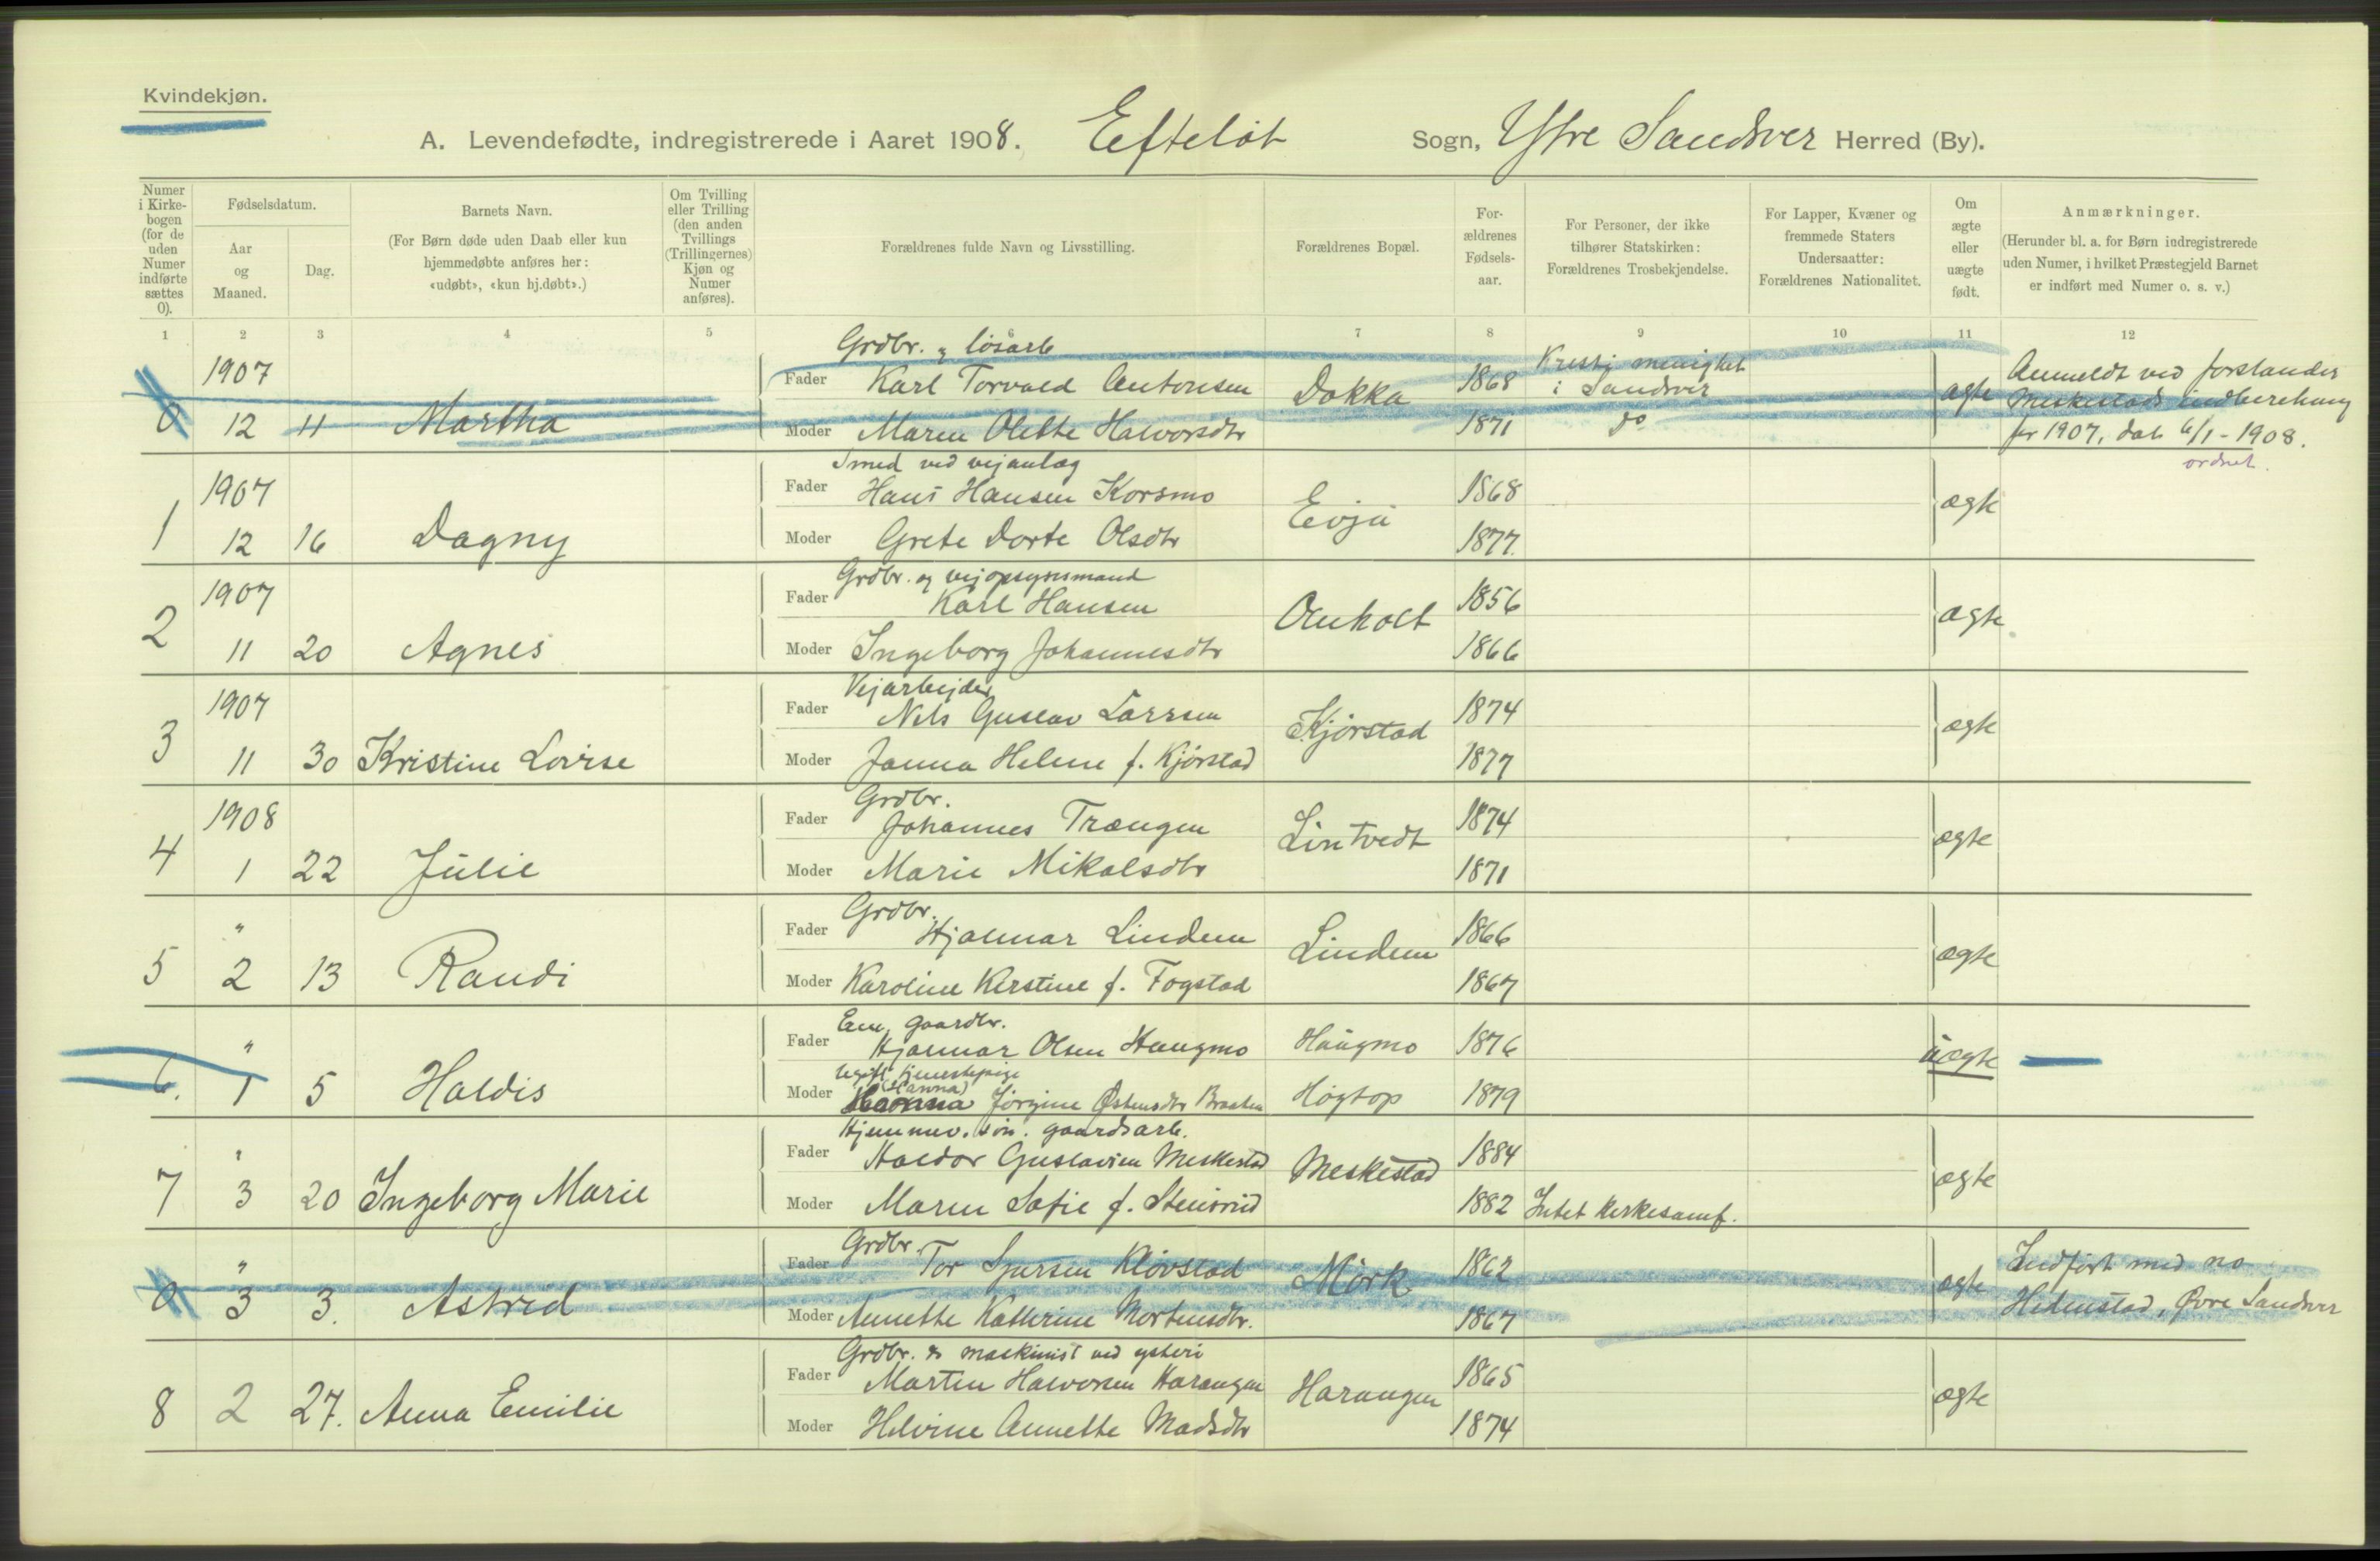 Kvindekjøn.
A. Levendefødte, indregistrerede i Aaret 1908. Efteløt Sogn, Ytre Sandsver Herred (By).
Numer i Kirkebogen (for de uden Numer indførte sættes 0).
Fødselsdatum.
Aar og Maaned.
Dag.
Barnets Navn.
(For Børn døde uden Daab eller kun hjemmedøbte anføres her: «udøbt», «kun hj.døbt».)
Om Tvilling eller Trilling (den anden Tvillings (Trillingernes) Kjøn og Numer anføres).
Forældrenes fulde Navn og Livsstilling.
Forældrenes Bopæl.
Forældrenes Fødselsaar.
For Personer, der ikke tilhører Statskirken: Forældrenes Trosbekjendelse.
For Lapper, Kvæner og fremmede Staters Undersaatter: Forældrenes Nationalitet.
Om ægte eller uægte født.
Anmærkninger.
(Herunder bl. a. for Børn indregistrerede uden Numer, i hvilket Præstegjeld Barnet er indført med Numer o. s. v.)
1 2 3 4 5 6 7 8 9 10 11 12
Grdbr. og løsarb
1907 Fader Karl Torvald Antonsen Dokka 1868 Kristj menighet i Sandsver ægte Anmeldt ved forstander
0 12 11 Martha Moder Maren Olette Halvorsdtr 1871 do Meskestads indberetning
for 1907, dat. 6/1 - 1908.
ordnet.
Smed ved vejanlæg
1907 Fader Hans Hansen Korsmo Evju 1868 ægte
1 12 16 Dagny Moder Grete Dorte Olsdtr 1877.
Grdbr. og vejopsynsmand
1907 Fader Karl Hansen Omholt 1856 ægte
2 11 20 Agnes Moder Ingeborg Johannesdtr 1866
Vejarbejder
1907 Fader Nils Gustav Larsen Kjørstad 1874 ægte
3 11 30 Kristine Lovise Moder Janna Helene f. Kjørstad 1877
Grdbr.
1908 Fader Johannes Trængen Lintvedt 1874 ægte
4 1 22 Julie Moder Marie Mikalsdtr 1871
Grdbr.
" Fader Hjalmar Lindem Lindem 1866 ægte
5 2 13 Randi Moder Karoline Kirstine f. Fogstad 1867
Em. gaardbr.
" Fader Hjalmar Olsen Haugmo Haugmo 1876 uægte
Ugift tjenestepige
(Hanna)
6. 1 5 Haldis Moder Hanna Jørgine Østensdtr Braaten Høgtop 1879
Hjemmev. søn. gaardsarb.
" Fader Haldor Gustavsen Meskestad Meskestad 1884 ægte
7 3 20 Ingeborg Marie Moder Maren Sofie f. Stensrud 1882 Intet kirkesamf.
Grdbr.
" Fader Tor Sjursen Kløvstad Mørk 1862 ægte Indført med no
0 3 3. Astrid Moder Annette Kathrine Mortensdtr. 1867 Hedenstad, Øvre Sandsver
Grdbr. & maskinist ved ysteri
Fader Martin Halvorsen Harangen Harangen 1865 ægte
8 2 27. Anna Emilie Moder Helvine Annette Madsdtr 1874